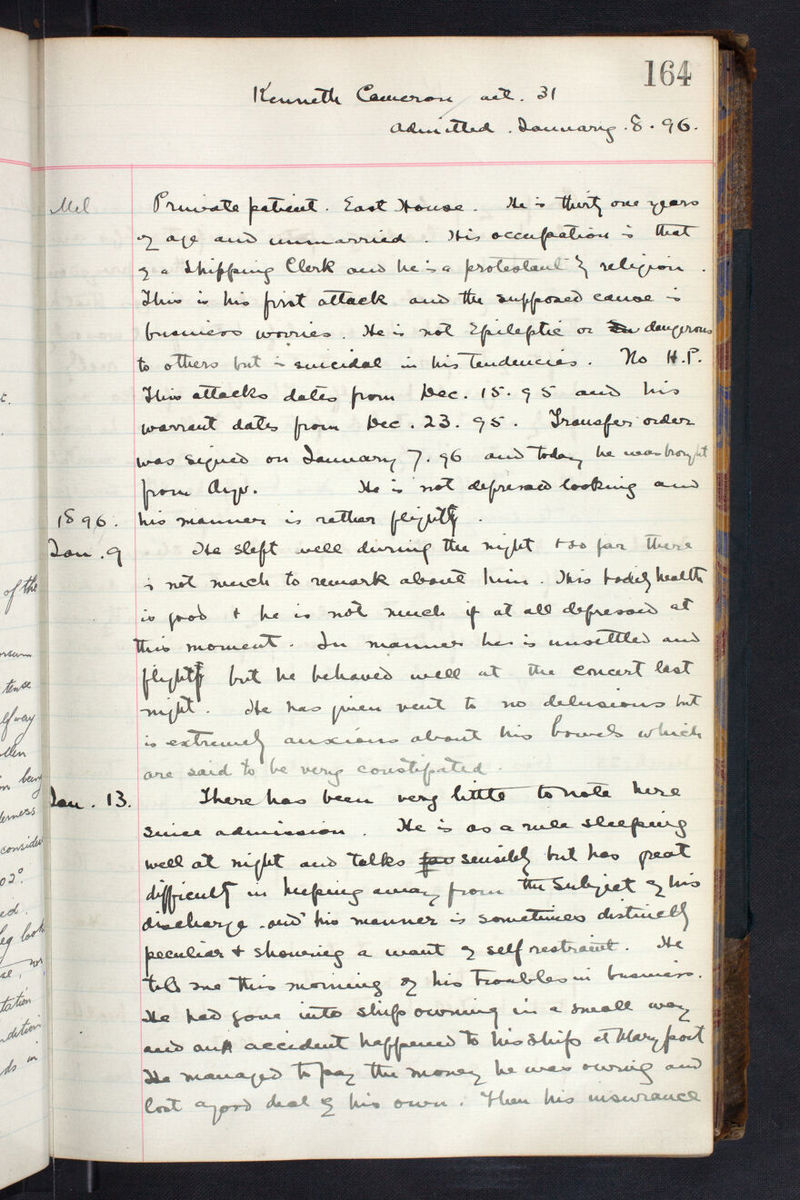 164
Kenneth Cameron aet. 31
Admitted. January. 8. 96.
Mel Private patient. East House. He is thirty one years
of age and unmarried. His occupation is that
of a Shipping Clerk and he is a protestant by religion.
This is his first attack and the supposed cause is
business worries. He is not Epileptic or dangerous
to others but is suicidal in his tendencies. No H.P.
This attacks dates from Dec. 15. 95 and his
warrant dates from Dec. 23. 95. Transfer order
was signed on January 7. 96 and today he was brought
from Ayr. He is not depressed looking and
1896. his manner is rather flighty.
Jan. 9 He slept well during the night & so far there
is not much to remark about him. His bodily health
is good & he is not much if at all depressed at
this moment. In manner he is unsettled and
flighty but he behaved well at the concert last
night. He has given vent to no delusions but
is extremely anxious about his bowels which
are said to be very constipated.
Jan. 13. There has been very little to note here
since admission. He is as a rule sleeping
well at night and talks sensibly but has great
difficulty in keeping away from the subject of his
discharge and his manner is sometimes distinctly
peculiar & showing a want of self restraint. He
told me this morning of his troubles in business.
He had gone into ship owning in a small way
and an accident happened to his ship at Maryport
He managed to pay the money he was owing and
lost a good deal of his own. Then his insurance
of the
tense
halfway
being
consider
02°
ed.
leg look